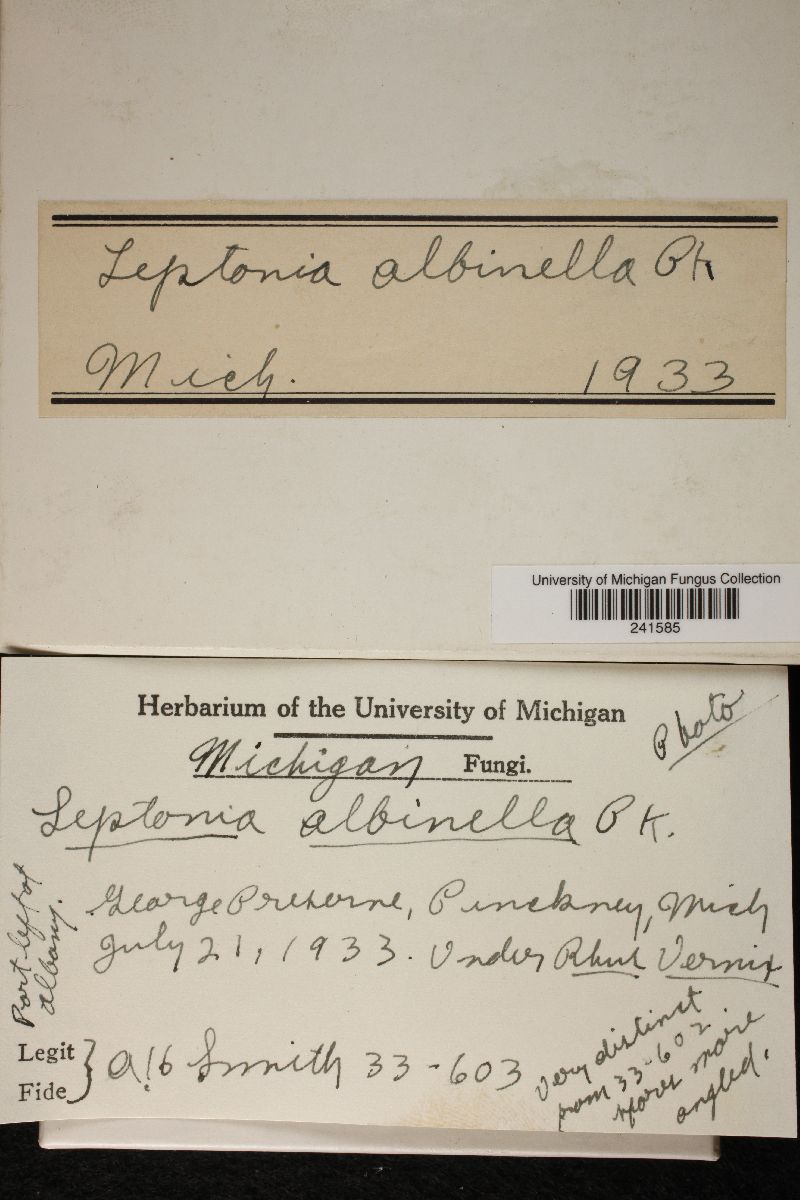 Leptonia albinella Pk
Mich. 1933
University of Michigan Fungus Collection
241585
Herbarium of the University of Michigan
Photo
Michigan Fungi.
Leptonia albinella Pk.
George Preserve, Pinckney, Mich
July 21, 1933. Under Rhus Vernix
Part left at
albany.
Legit
Fide
A.H. Smith 33-603
Very distinct
from 33-602.
spores more
angled.